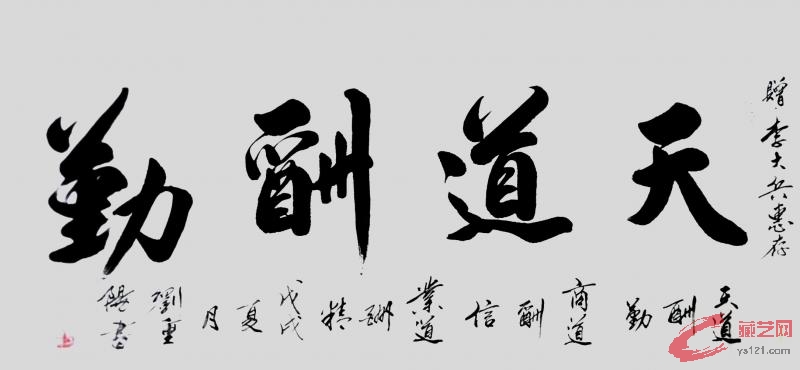 贈李大兵惠存
天道酬勤
天道酬勤商道酬信業道酬精戊戌夏月
劉重書
藏艺网
ys121.com